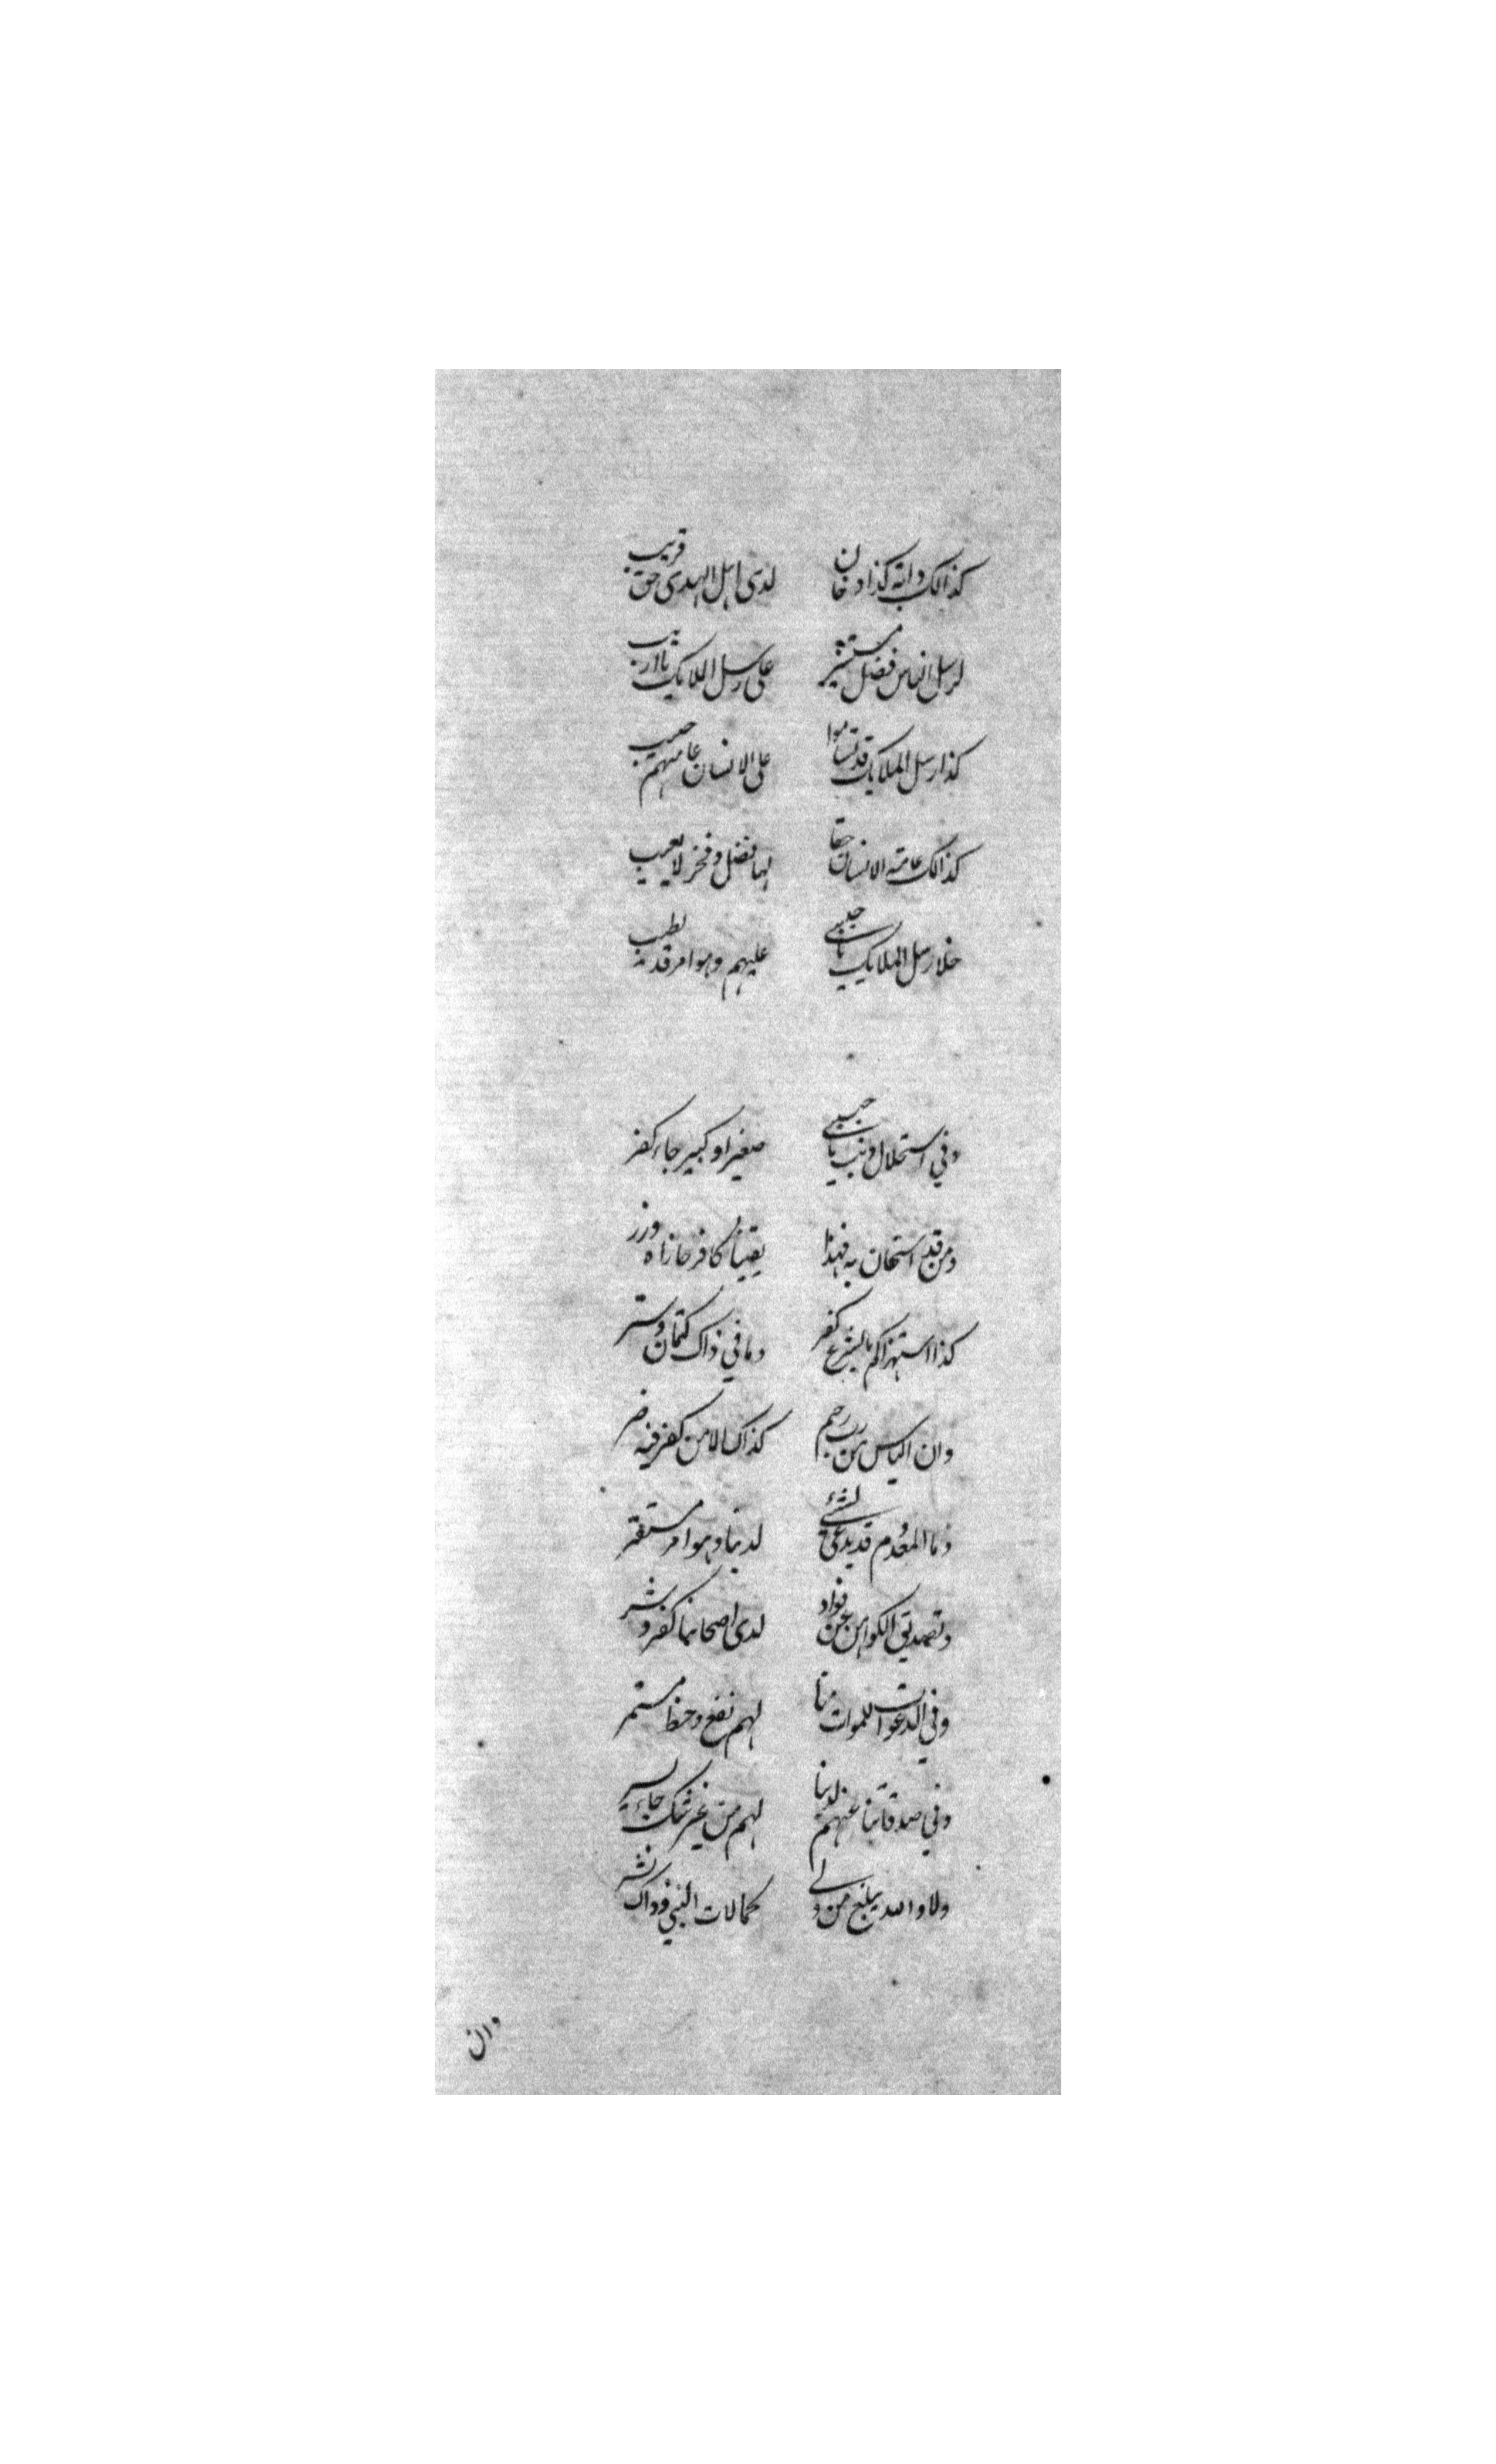 كذالك دابة كذا دخان لدى اهل الهدى حق قريب
لرسل الناس فضل مستشير على رسل الملايك يا اريب
كذا رسل الملايك قد تساموا على الانسان عامتهم حسيب
كذالك عامة الانسان حقا لها فضل وفخر لا يعيب
خلا رسل الملايك يا حبيبي عليهم وهو امر قد يطيب
وفي استحلال ذنب يا حبيبي صغير او كبير جاء كفر
ومن قد استهان به فهذا يقينا كافر حازاه وزر
كذا استهزاكم بالشرع كفر وما في ذاك كتمان وستر
وان الياس من رب رحيم كذاك الامن كفر فيه ضر
وما المعدوم قد يدعى لشيء لدينا وهو امر مستقر
وتصديق الكواهن عن فواد لدى اصحابنا كفر وشر
وفي الدعوات للموات منا لهم نفع وحظ مستمر
وفي صدقاتنا عنهم لدينا لهم من غير شك جاء
ولا والله يبلغ من ولي كمالات النبي وذاك نشر
وان